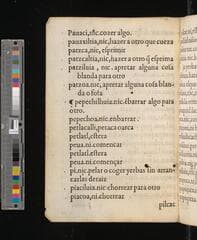 Panaci,nic.cozer algo.
panaxiltia,nic,hazer a otro que cueza
patzca,nic, esprimir
patzcaltia,nic,hazer a otro q̃ esprima
patzilhuia, nic. apretar alguna cosa
blanda para otro
patzoa.nic, apretar alguna cosa blan-
da o fofa
¶ pepechilhuia.nic.ẽbarrar algo para
otro.
pepechoa,nic.enbarrar.
petlacalli,petaca o arca
petlatl,estera
peua.ni.començar
petlatl.estera
peua.ni.començar
pi.nic.pelar o coger yeruas sin arran-
carlas de raiz
piaciluia.nic chorrear para otro
piacoa,ni.chorrear
pilcac